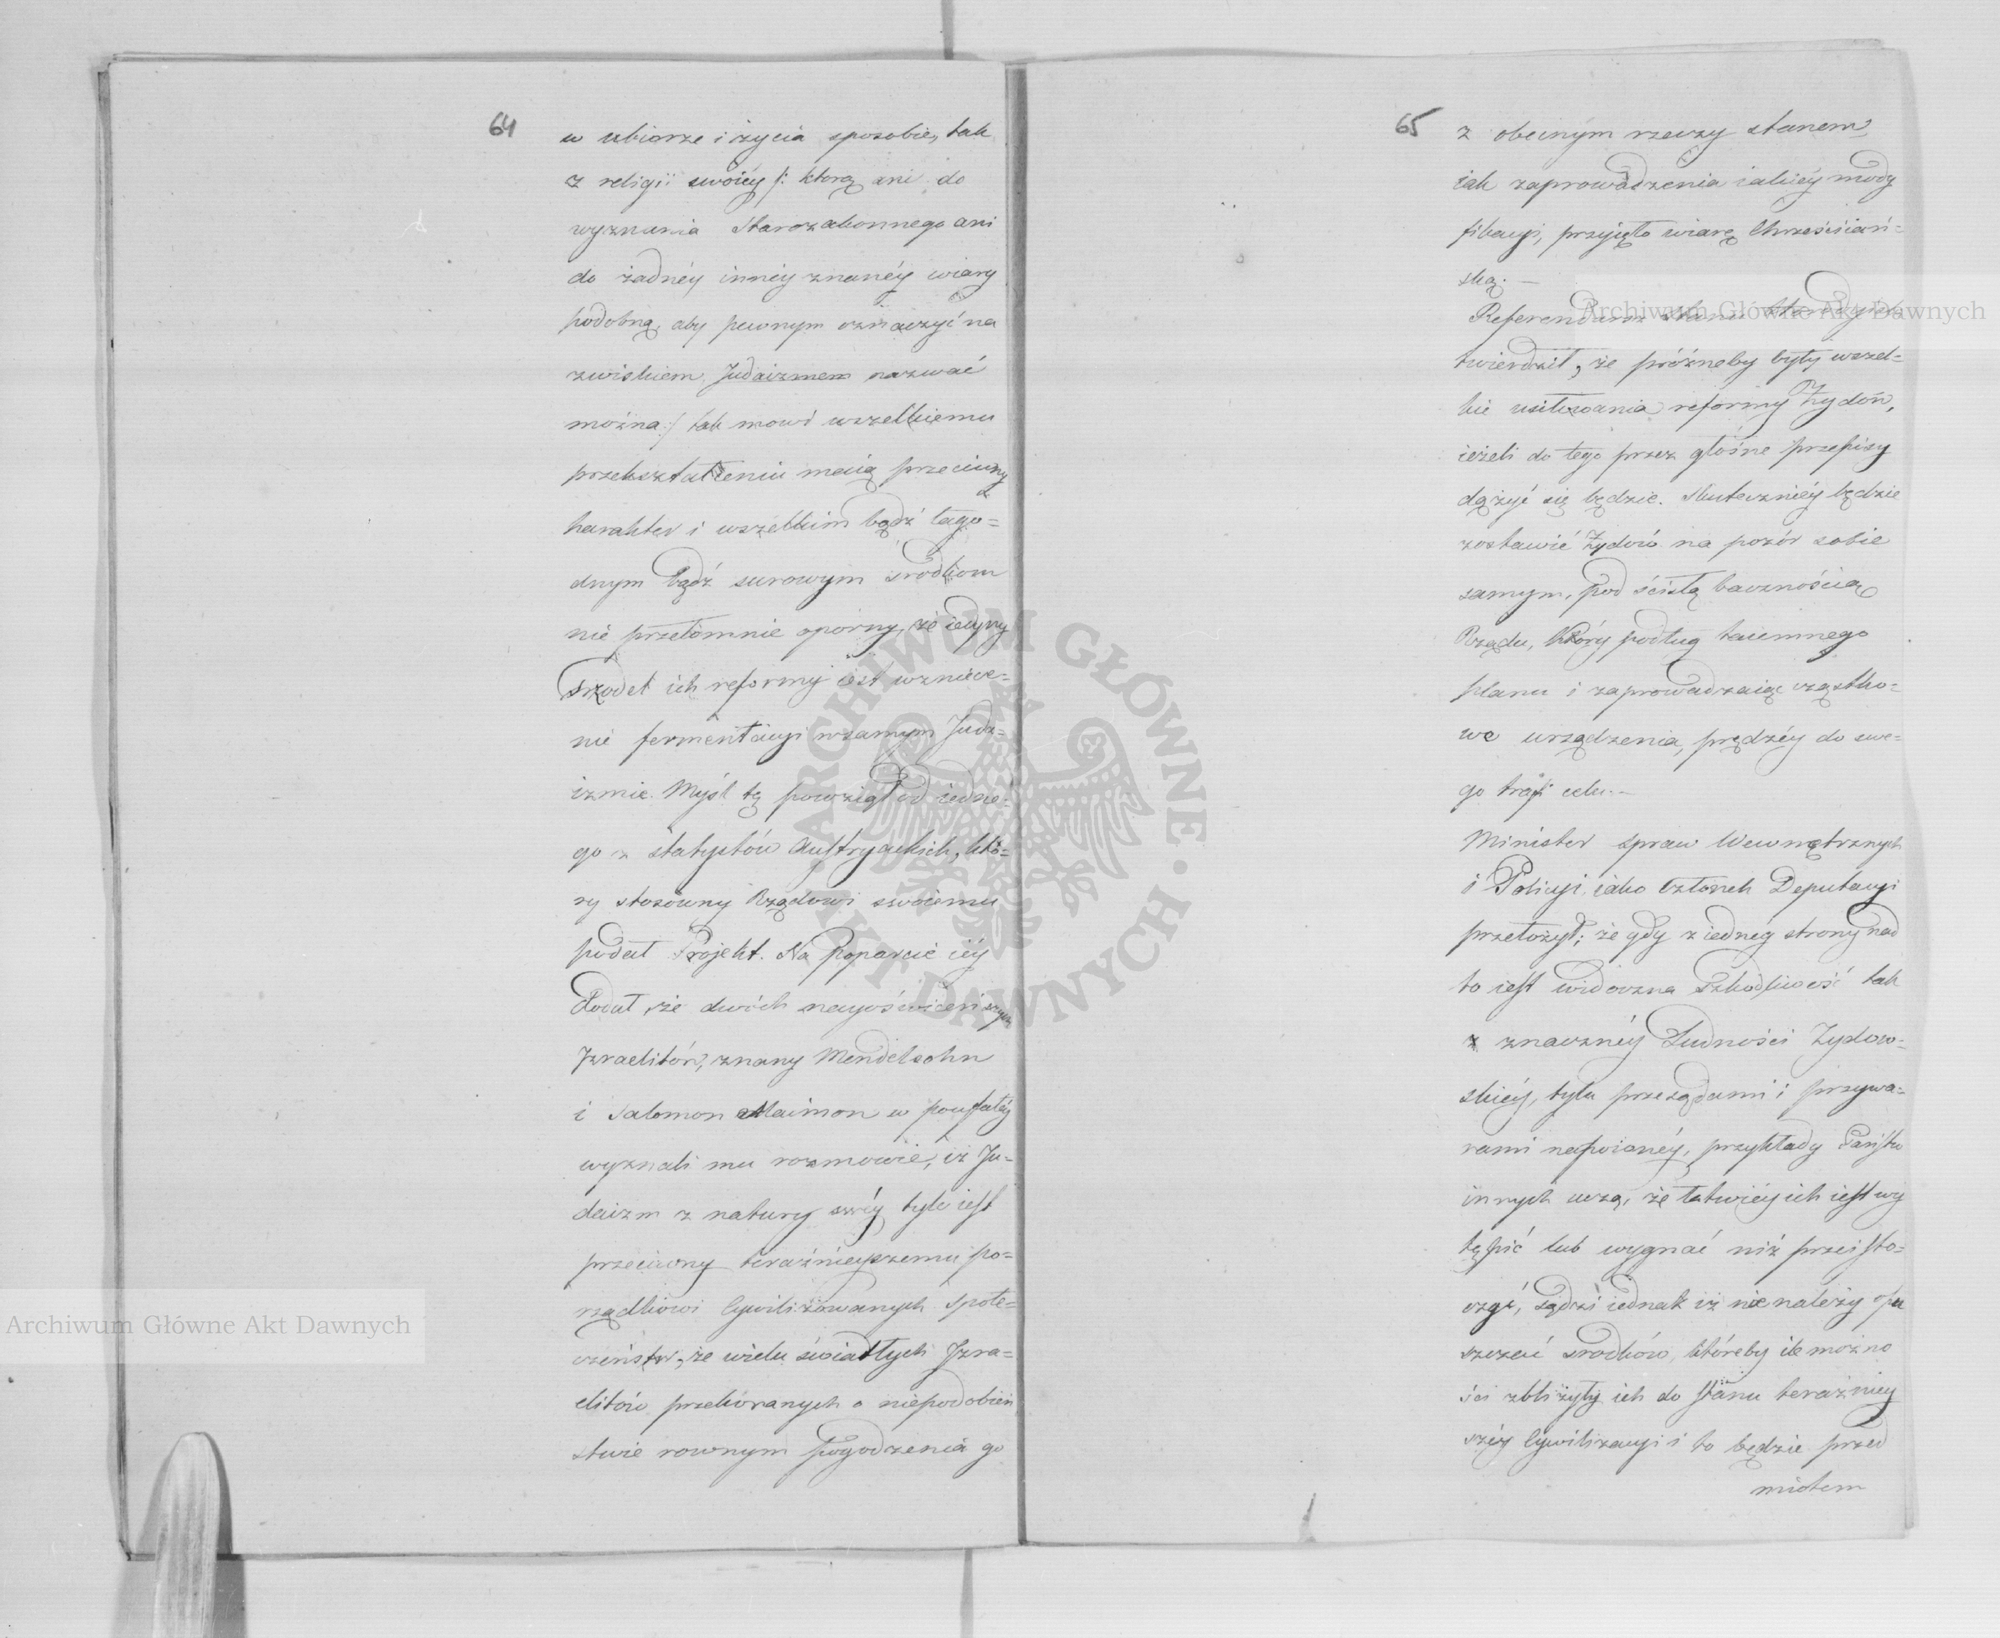 64
w ubiorze i życia sposobie, tak
z religii swoiéy /: ktorą ani do
wyznania Starozakonnego ani
do żadnéy innéy znanéy wiary
podobną, aby pewnym oznaczyć na
zwiskiem Judaizmem nazwać
można :/ tak mowi wszelkiemu
przekształceniu maią przeciwny
harakter i wszelkim bądź łago=
dnym bądź surowym srodkom
nie przełomnie oporny, że iedyny
srzodek ich reformy iest wzniece=
nie fermentacyi w samym Juda=
izmie. Myśl tę powziął od iedne=
go z statystów Austryackich, któ=
ry stosowny Rządowi swoiemu
podał Projekt. Na Poparcie iéy
dodał, że dwóch nayoświeceńszych
Izraelitów, znany Mendelsohn
i Salomon Maimon w poufałéy
wyznali mu rozmowie, iż Ju=
daizm z natury swéy tyle iest
przeciwny teraźnieyszemu po=
rządkowi Cywilizowanych społe=
czeństw, że wielu światłych Izra=
elitów przekonanych o niepodobień
stwie rownym pogodzenia go
65
z obecnym rzeczy stanem
iak zaprowadzenia iakiéy mody
fikacyi, przyięło wiarę Chrześciiań=
ską. —
Referendarz Stanu
twierdził, że próżneby były wszel=
kie usiłowania reformy Żydów,
ieżeli do tego przez głośne przepisy
dążyć się będzie. Skuteczniéy będzie
zostawić Żydów na pozór sobie
samym, pod ścisłą bacznością
Rządu, który podług taiemnego
planu i zaprowadzaiąc cząstko=
we urządzenia, prędzéy do swe=
go trafi celu. —
Minister spraw Wewnętrznych
i Policyi iako Członek Deputacyi
przełożył; że gdy z iedney strony nad
to iest widoczna Szkodliwość tak
z znacznéy Ludności Żydow=
skiéy, tylu przesądami i przywa=
rami napoionéy, przykłady Państw
innych uczą, że łatwiéy ich iest wy
tępić lub wygnać niż przeisto=
czyć, sądzi iednak iż nie należy opu
szczać srodków, któreby ile możno
ści zbliżyły ich do stanu teraźniey
széy Cywilizacyi i to będzie przed
miotem
Archiwum Główne Akt Dawnych
Archiwum Główne Akt Dawnych
ARCHIWUM GŁÓWNE • AKT DAWNYCH •